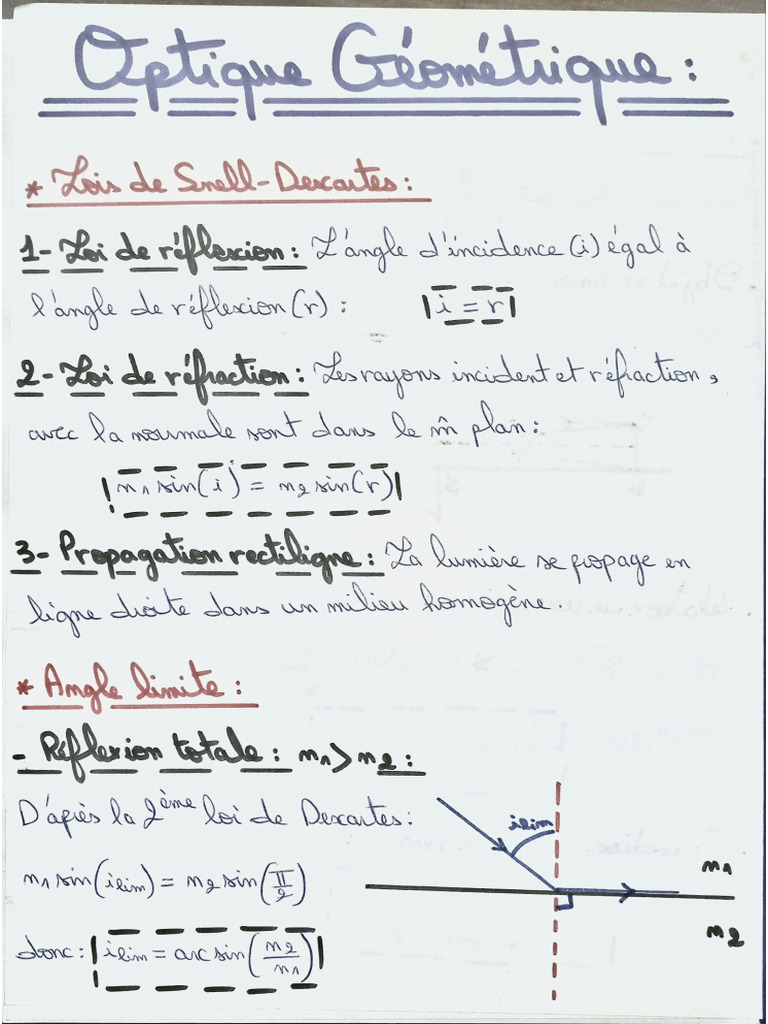 Optique Géométrique :
* Lois de Snell-Descartes :
1- Loi de réflexion : L'angle d'incidence (i) égal à
l'angle de réflexion (r) : i = r
2- Loi de réfraction : Les rayons incident et réfraction,
avec la normale sont dans le m̂ plan :
n₁ sin(i) = n₂ sin(r)
3- Propagation rectiligne : La lumière se propage en
ligne droite dans un milieu homogène.
* Angle limite :
- Réflexion totale : n₁ > n₂ :
D'après la 2ème loi de Descartes :
n₁ sin(i lim) = n₂ sin(π/2)
donc : i lim = arc sin(n₂/n₁)
i lim
n₁
n₂